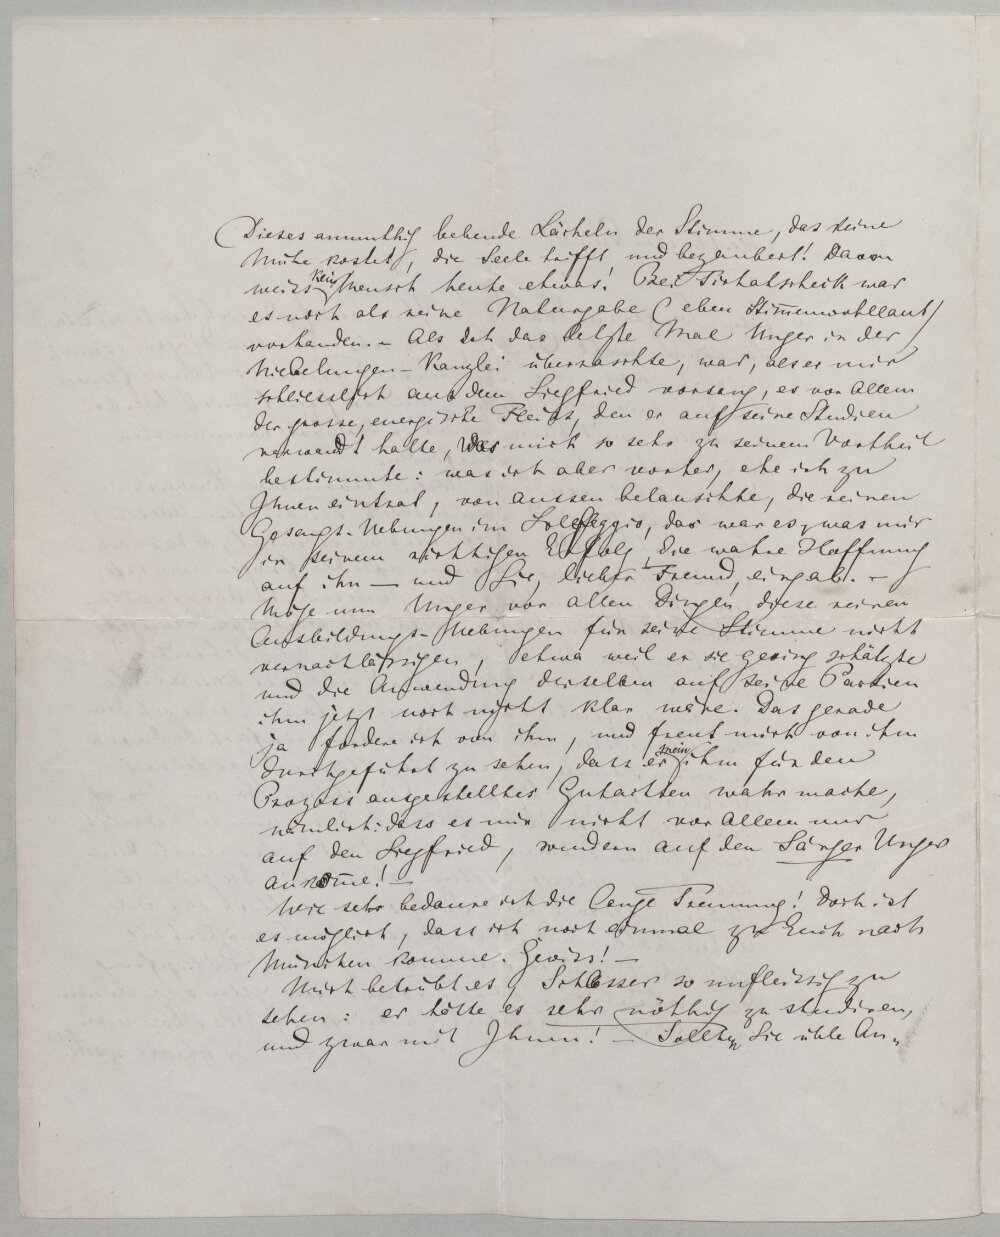 Dieses anmuthig bebende Lächeln der Stimme, das keine
Mühe kostet, die Seele trifft und bezaubert! Davon
weiss kein Mensch heute etwas! Bei Tichatscheck war
es noch als reine Naturgabe (eben Stim̄enwohllaut)
vorhanden. – Als ich das letzte Mal Unger in der
Niebelungen-Kanzlei überraschte, war, als er mir
schliesslich aus dem Siegfried vorsang, es vor Allem
der grosse, energische Fleiss, den er auf seine Studien
verwandt hatte, was mich so sehr zu seinem Vortheil
bestimmte: was ich aber vorher, ehe ich zu
Ihnen eintrat, von aussen belauschte, die reinen
Gesangs-Uebungen im Solfeggio, das war es, was mir
in seinem richtigen Erfolg die wahre Hoffnung
auf ihn — und Sie, lieber Freund, eingab. –
Möge nun Unger vor allen Dingen diese reinen
Ausbildungs-Uebungen für seine Stimme nicht
vernachlässigen, etwa weil er sie gering schätzte
und die Anwendung derselben auf seine Partien
ihm jetzt noch nicht klar wäre. Das gerade
ja fordere ich von ihm, und freut mich von ihm
durchgeführt zu sehen, dass er mein ihm für den
Prozess ausgestelltes Gutachten wahr mache,
nämlich: dass es mir nicht vor Allem nur
auf den Siegfried, sondern auf den Sänger Unger
ankom̄e! –
Wie sehr bedaure ich die lange Trennung! Doch ist
es möglich, dass ich noch einmal zu Euch nach
München komme. Gewiss! –
Mich betrübt es, Schlosser so unfleissig zu
sehen: er hätte es sehr nöthig zu studiren,
und zwar mit Ihnen! – Sollten Sie üble An-